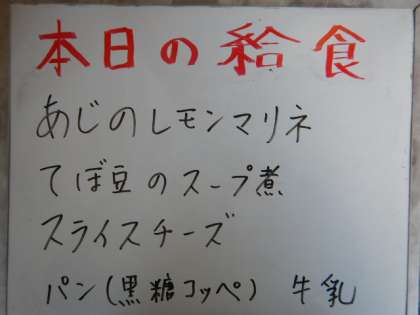 本日の給食
あじのレモンマリネ
てぼ豆のスープ煮
スライスチーズ
パン(黒糖コッペ) 牛乳